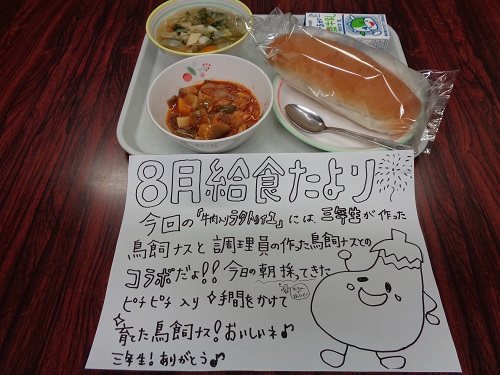 8月給食たより
今回の『牛肉入りラタトゥイユ』には、三年生が作った
鳥飼ナスと調理員の作った鳥飼ナスとの
コラボだよ!!今日の朝採ってきた
ピチピチ入り手間をかけて
育てた鳥飼ナス!おいしいネ♪
三年生!ありがとう♪